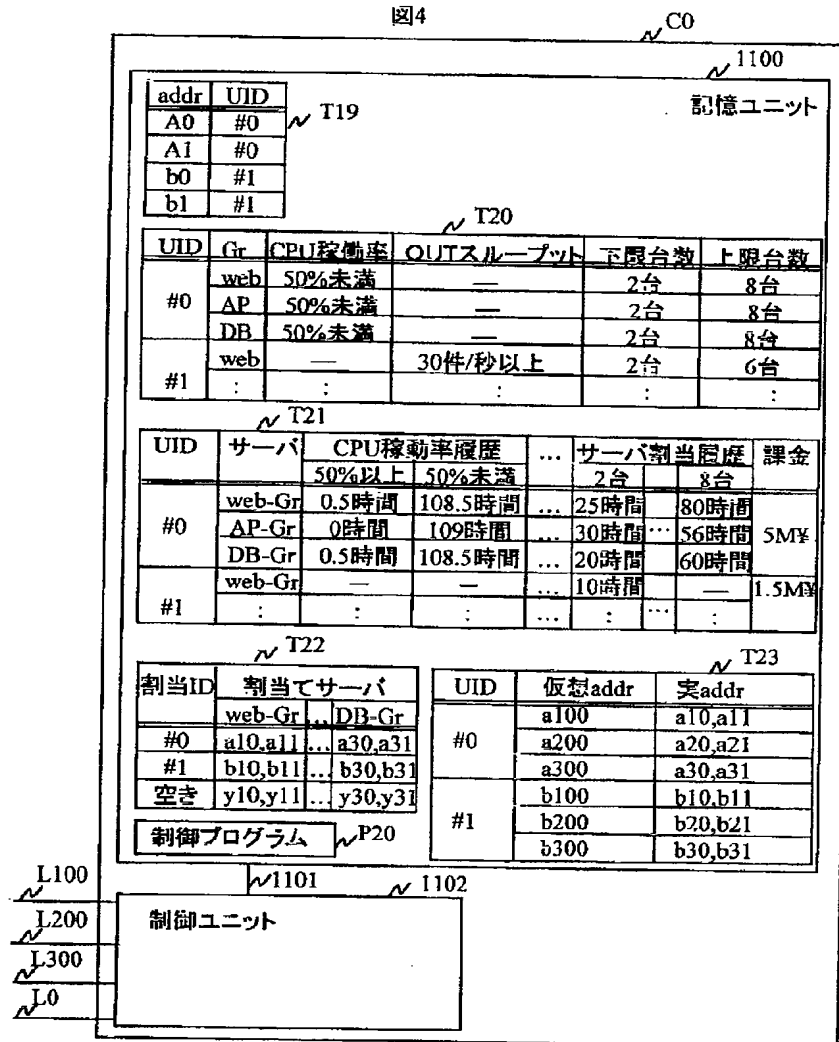 図4
C0
1100
記憶ユニット
addr UID
A0 #0
A1 #0
b0 #1
b1 #1
T19
T20
UID Gr CPU稼働率 OUTスループット 下限台数 上限台数
#0
web 50%未満 — 2台 8台
AP 50%未満 — 2台 8台
DB 50%未満 — 2台 8台
#1
web — 30件/秒以上 2台 6台
: : : : :
T21
UID サーバ CPU稼動率履歴 … サーバ割当履歴 課金
50%以上 50%未満 2台 8台
#0
web-Gr 0.5時間 108.5時間 … 25時間 80時間
AP-Gr 0時間 109時間 … 30時間 … 56時間
DB-Gr 0.5時間 108.5時間 … 20時間 60時間
5M¥
#1
web-Gr — — … 10時間 — 1.5M¥
: : : … : … :
T22
割当ID 割当てサーバ
web-Gr … DB-Gr
#0 a10,a11 … a30,a31
#1 b10,b11 … b30,b31
空き y10,y11 … y30,y31
T23
UID 仮想addr 実addr
#0
a100 a10,a11
a200 a20,a21
a300 a30,a31
#1
b100 b10,b11
b200 b20,b21
b300 b30,b31
制御プログラム
P20
1101
1102
制御ユニット
L100
L200
L300
L0